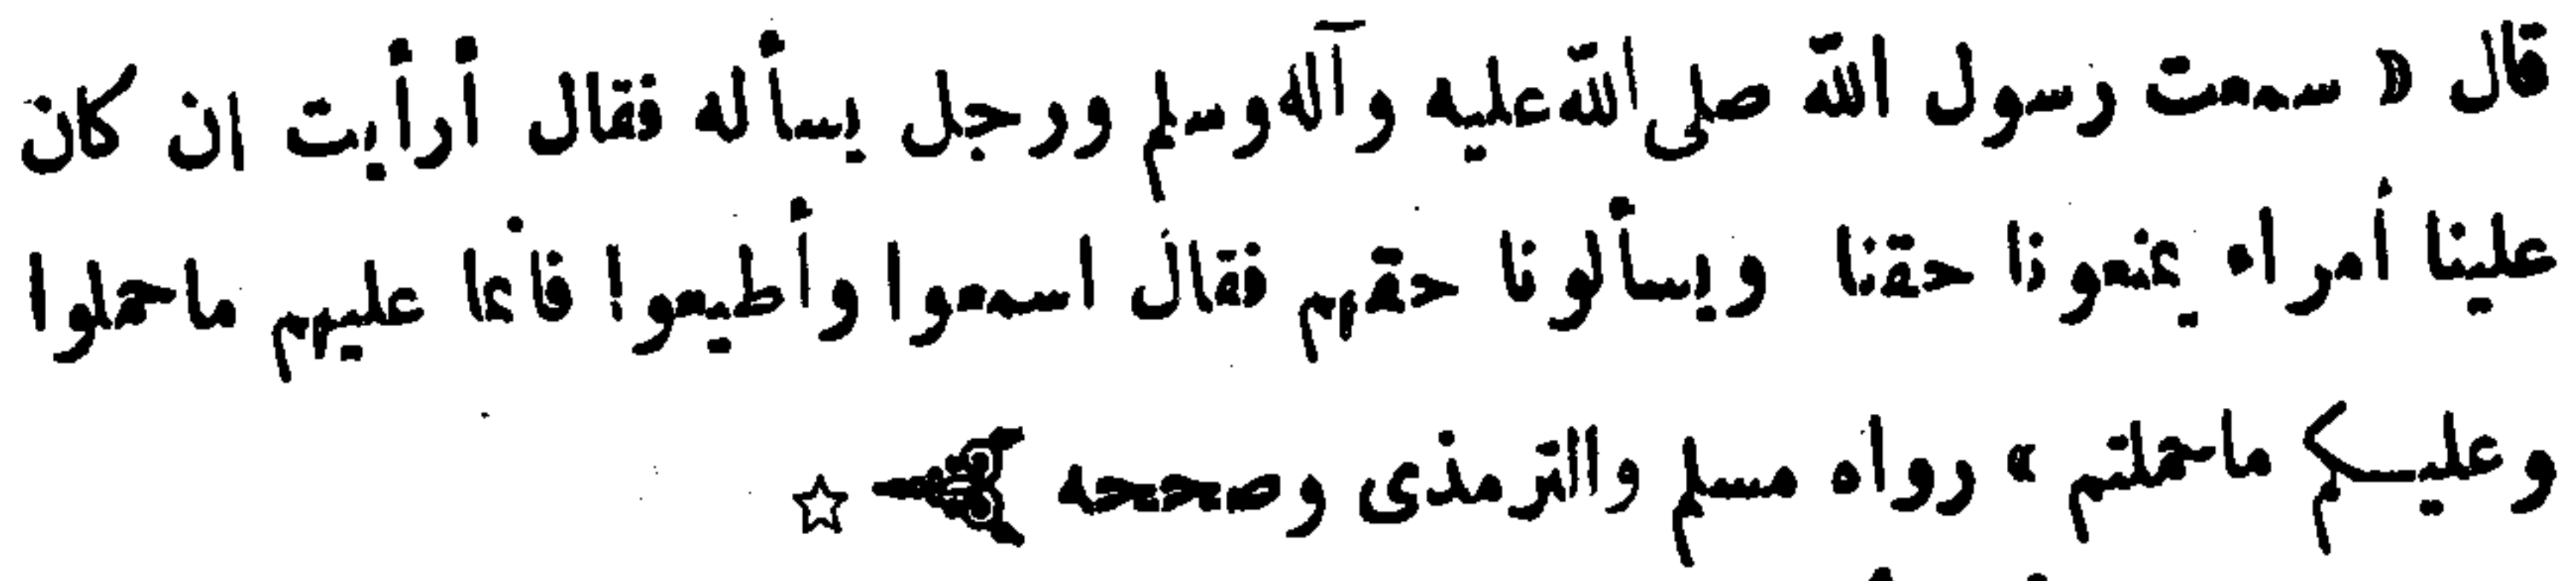 قال « سمعت رسول الله صلى الله عليه وآله وسلم ورجل يسأله فقال أرأيت ان كان
علينا أمراء يمنعونا حقنا ويسألونا حقهم فقال اسمعوا وأطيعوا فانما عليهم ما حملوا
وعليكم ما حملتم » رواه مسلم والترمذى وصححه ☆